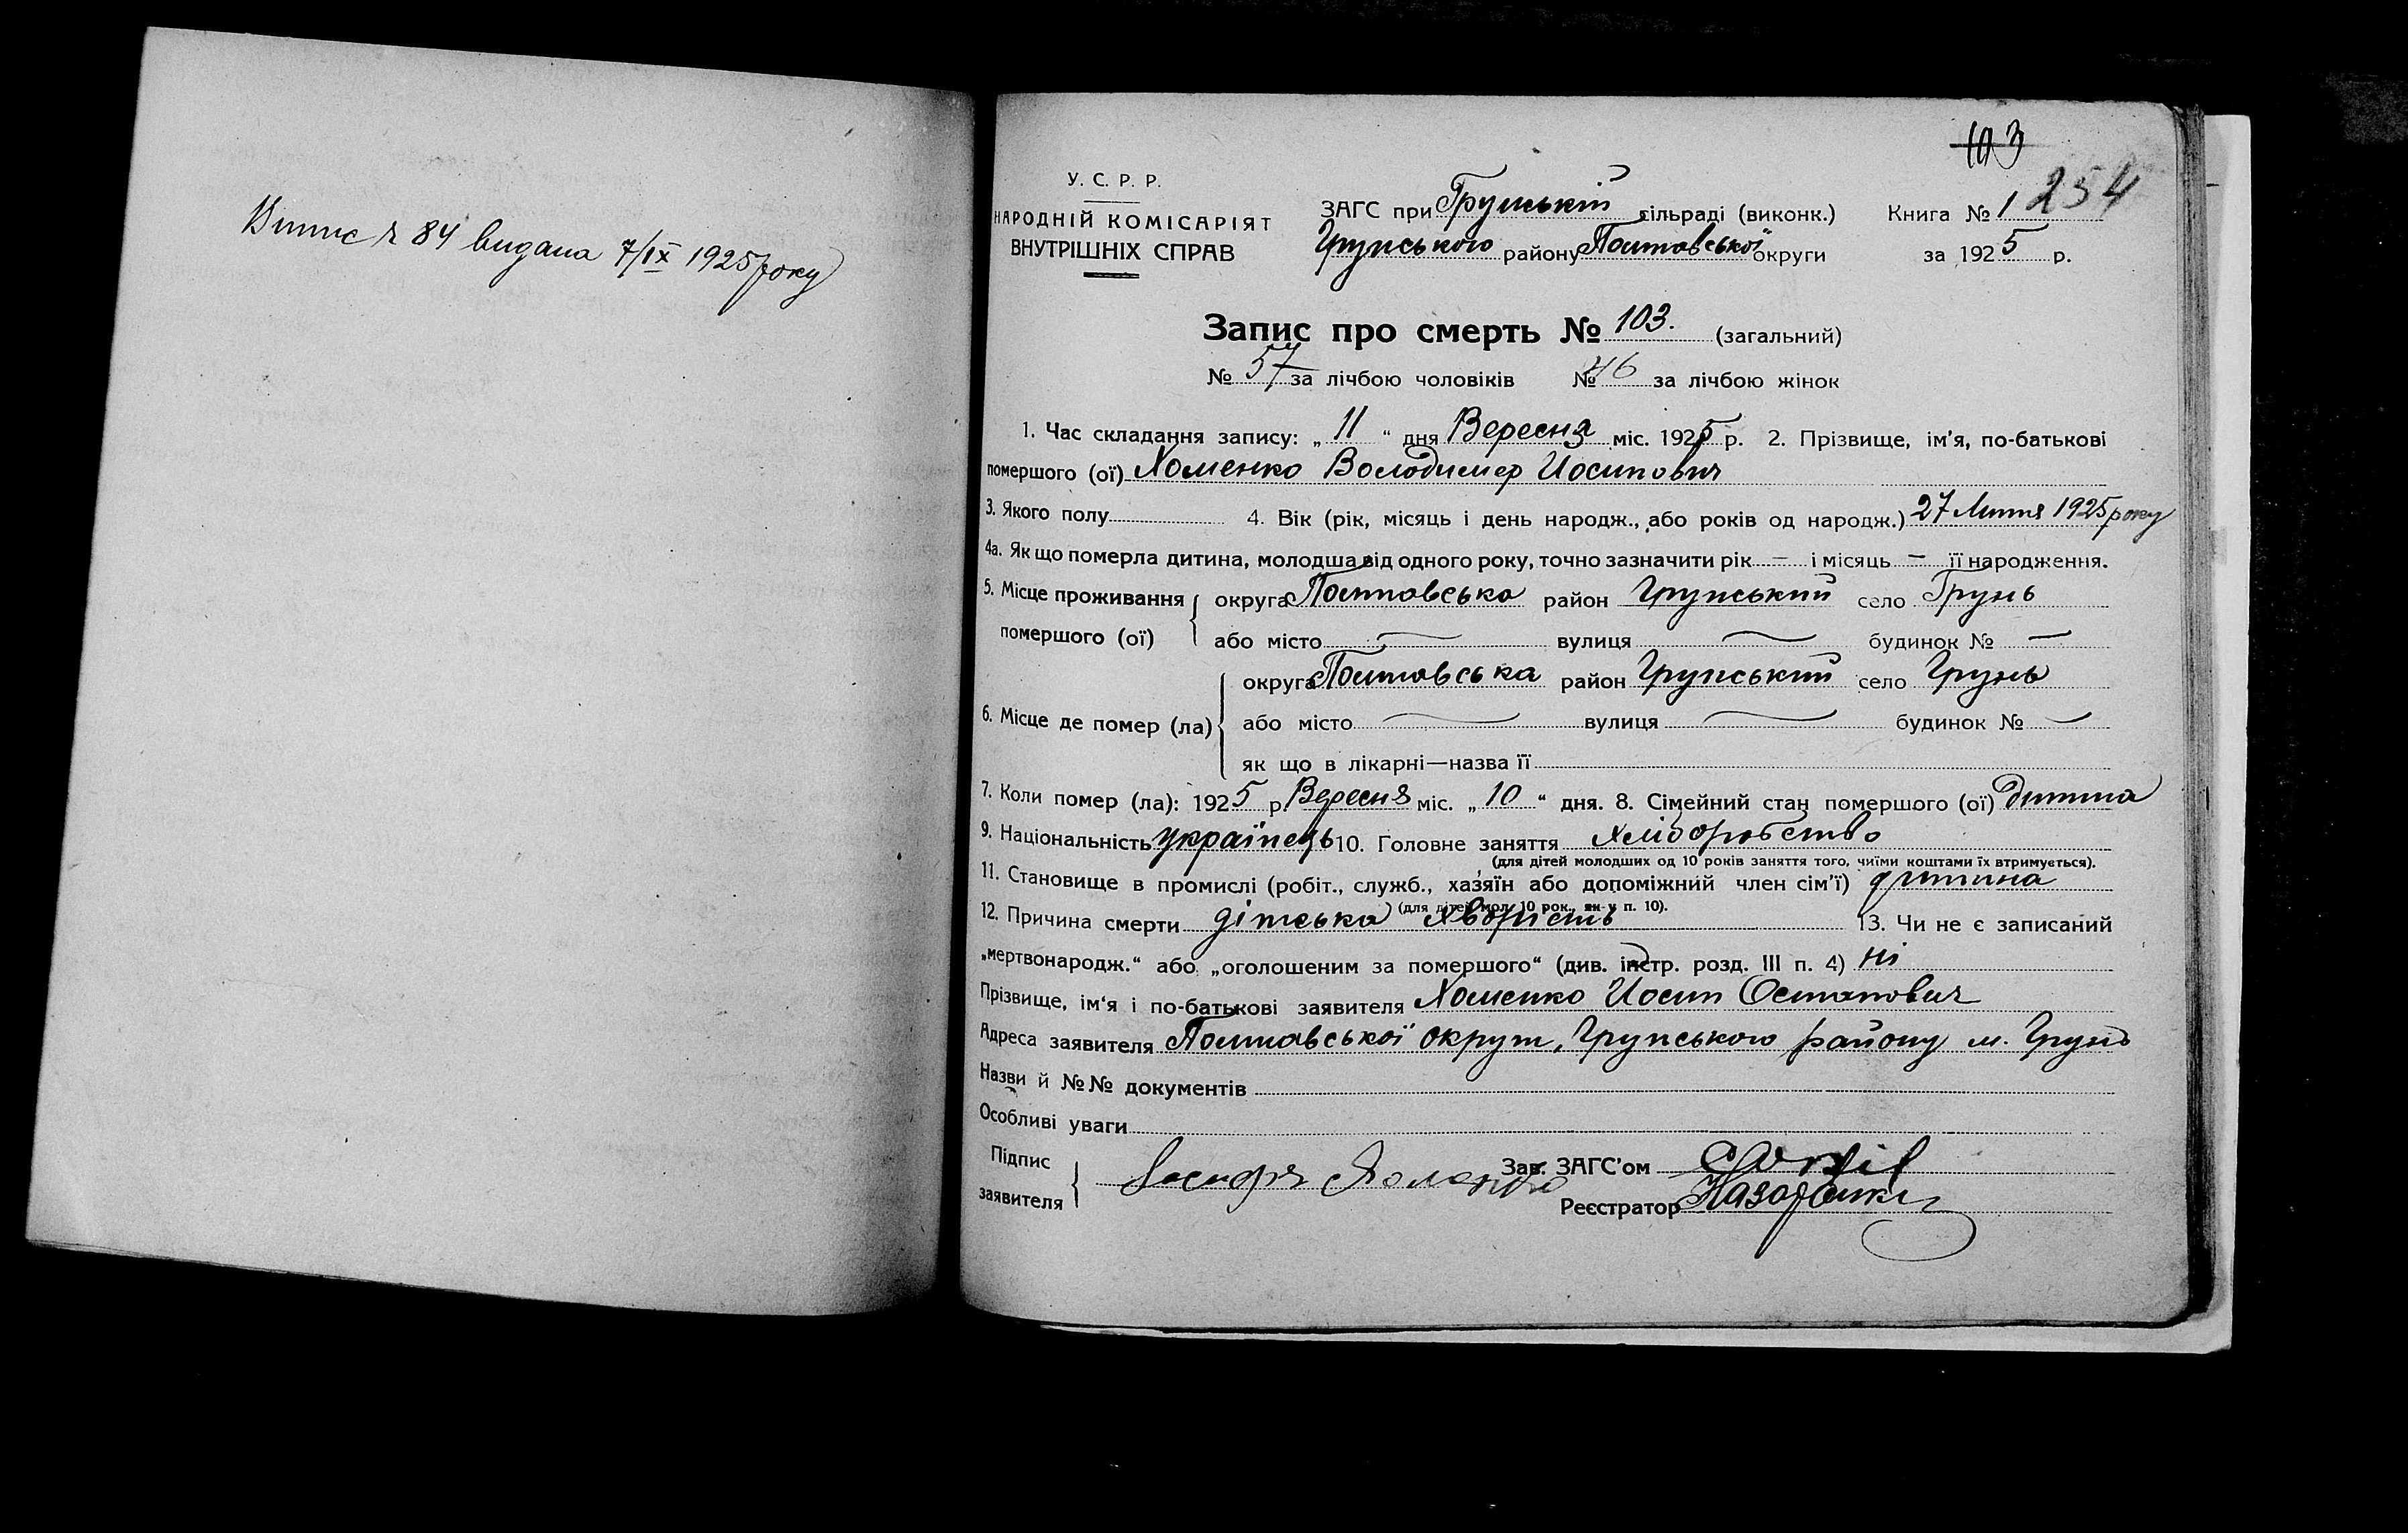 Випис № 84 видана 7/IX 1925 року
103
254
У. С. Р. Р.
НАРОДНІЙ КОМІСАРІЯТ
ВНУТРІШНІХ СПРАВ
ЗАГС при Грунській сільраді (виконк.) Книга № 1
Грунського району Полтавської округи за 1925 р.
Запис про смерть № 103. (загальний)
№ 57 за лічбою чоловіків № 46 за лічбою жінок
1. Час складання запису: „ 11 “ дня Вересня міс. 1925 р. 2. Прізвище, ім’я, по-батькові
помершого (ої) Хоменко Володимер Йосипович
3. Якого полу 4. Вік (рік, місяць і день народж., або років од народж.) 27 Липня 1925 року
4а. Як що померла дитина, молодша від одного року, точно зазначити рік — і місяць — її народження.
5. Місце проживання округа Полтавська район Грунський село Грунь
помершого (ої) або місто — вулиця — будинок № —
округа Полтавська район Грунський село Грунь
6. Місце де помер (ла) або місто — вулиця — будинок № —
як що в лікарні—назва її
7. Коли помер (ла): 1925 р. Вересня міс. „ 10 “ дня. 8. Сімейний стан помершого (ої) дитина
9. Національність українець 10. Головне заняття хліборобство
(для дітей молодших од 10 років заняття того, чиїми коштами їх втримується).
11. Становище в промислі (робіт., служб., хазяїн або допоміжний член сім’ї) дитина
(для дітей мол. 10 рок., як у п. 10).
12. Причина смерти дітська хворість 13. Чи не є записаний
„мертвонародж.“ або „оголошеним за помершого“ (див. інстр. розд. III п. 4) ні
Прізвище, ім‘я і по-батькові заявителя Хоменко Йосип Остапович
Адреса заявителя Полтавської округи, Грунського району м. Грунь
Назви й №№ документів
Особливі уваги
Підпис
заявителя
Зав. ЗАГС’ом
Реєстратор